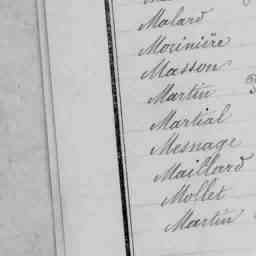 Malard
Morinière
Masson
Martin
Martial
Mesnage
Maillard
Mollet
Martin